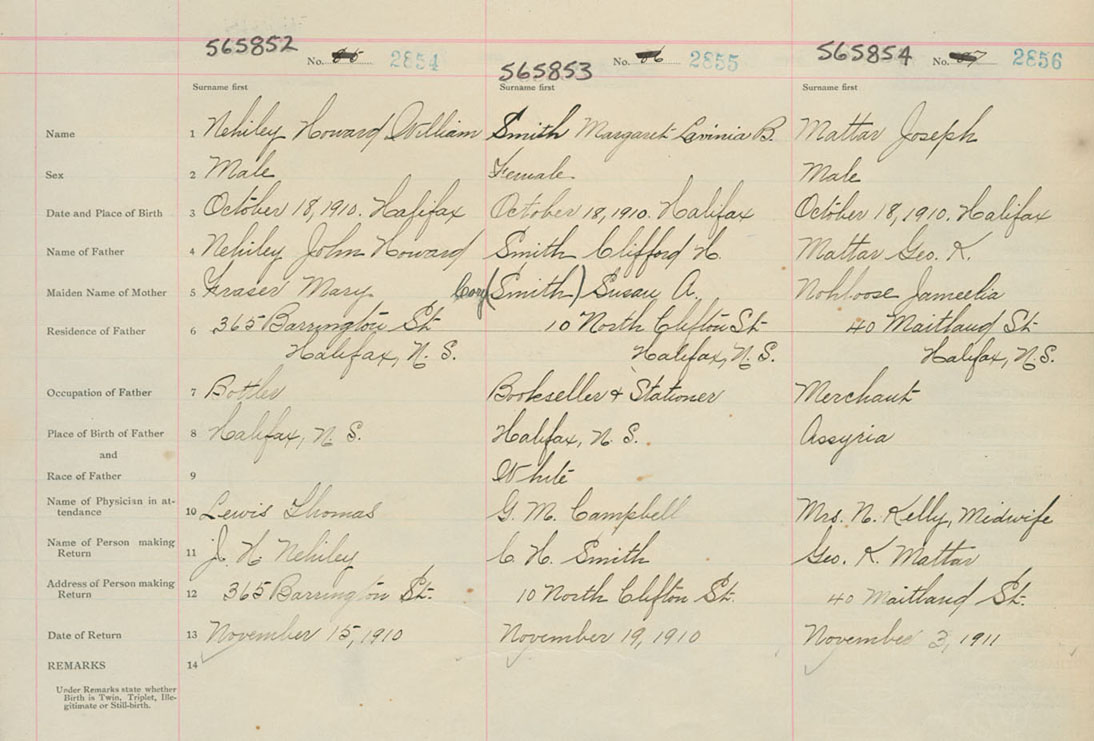 565852 No. 85 2854
565853 No. 86 2855
565854 No. 87 2856
Surname first Surname first Surname first
Name 1 Nehiley Howard William Smith Margaret Lavinia B. Mattar Joseph
Sex 2 Male Female Male
Date and Place of Birth 3 October 18, 1910. Halifax October 18, 1910. Halifax October 18, 1910. Halifax
Name of Father 4 Nehiley John Howard Smith Clifford H. Mattar Geo. K.
Maiden Name of Mother 5 Fraser Mary (Smith) Susan A. Nohloose Jameelia
Residence of Father 6 365 Barrington St. 10 North Clifton St. 40 Maitland St.
Halifax, N. S. Halifax, N. S. Halifax, N. S.
Occupation of Father 7 Bottler Bookseller & Stationer Merchant
Place of Birth of Father 8 Halifax, N. S. Halifax, N. S. Assyria
and
Race of Father 9 White
Name of Physician in at-
tendance 10 Lewis Thomas G. M. Campbell Mrs. N. Kelly, Midwife
Name of Person making
Return 11 J. H. Nehiley C. H. Smith Geo. K. Mattar
Address of Person making
Return 12 365 Barrington St. 10 North Clifton St. 40 Maitland St.
Date of Return 13 November 15, 1910 November 19, 1910 November 3, 1911
REMARKS 14
Under Remarks state whether
Birth is Twin, Triplet, Ille-
gitimate or Still-birth.